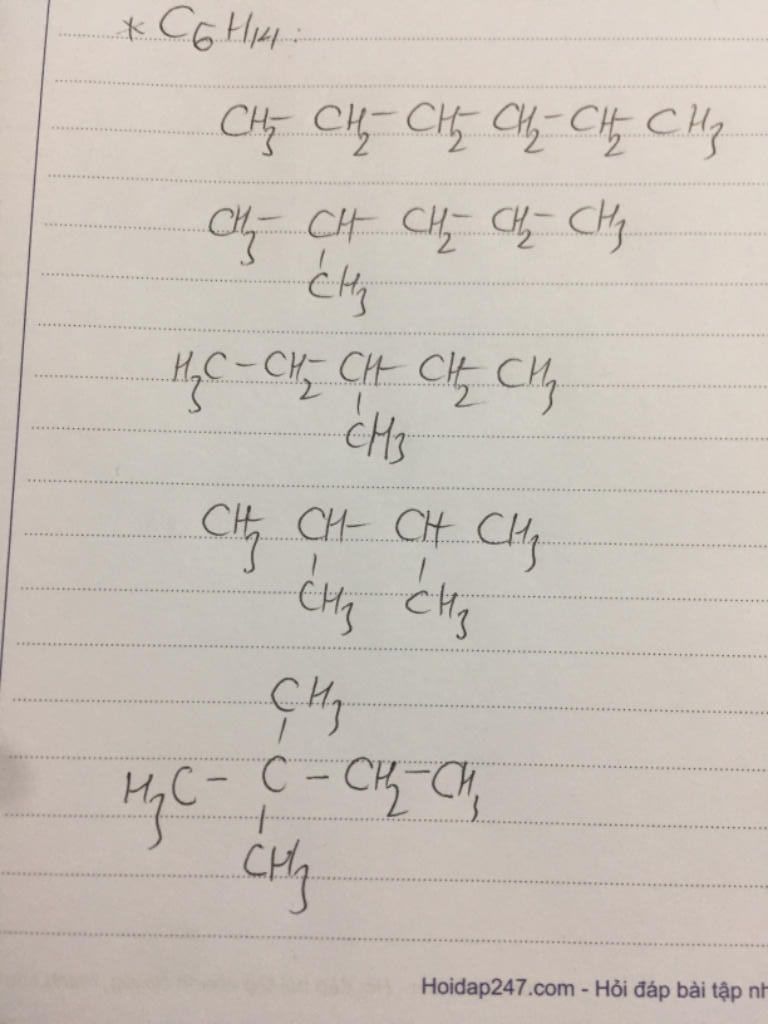 * C6H14:
CH3- CH2- CH2- CH2- CH2- CH3
CH3- CH- CH2- CH2- CH3
CH3
H3C - CH2- CH- CH2- CH3
CH3
CH3- CH- CH- CH3
CH3 CH3
CH3
H3C - C - CH2 - CH3
CH3
Hoidap247.com - Hỏi đáp bài tập nh